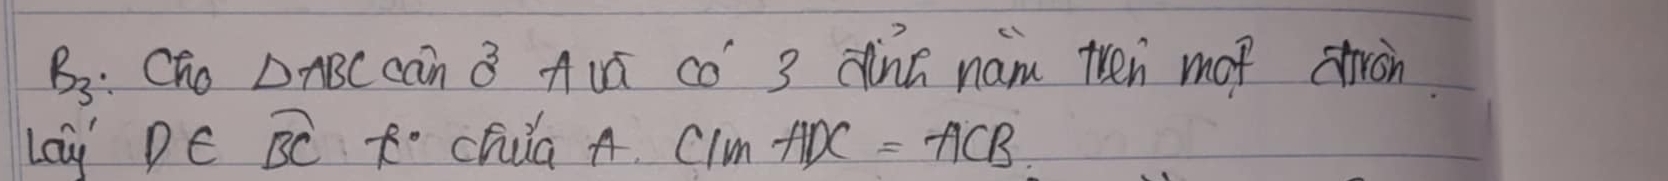 B3: Cho ΔABC cân ở A và có 3 đỉnh nằm trên một đtròn.
Lấy D ∈ BC k° chứa A. C/m ADC = ACB.